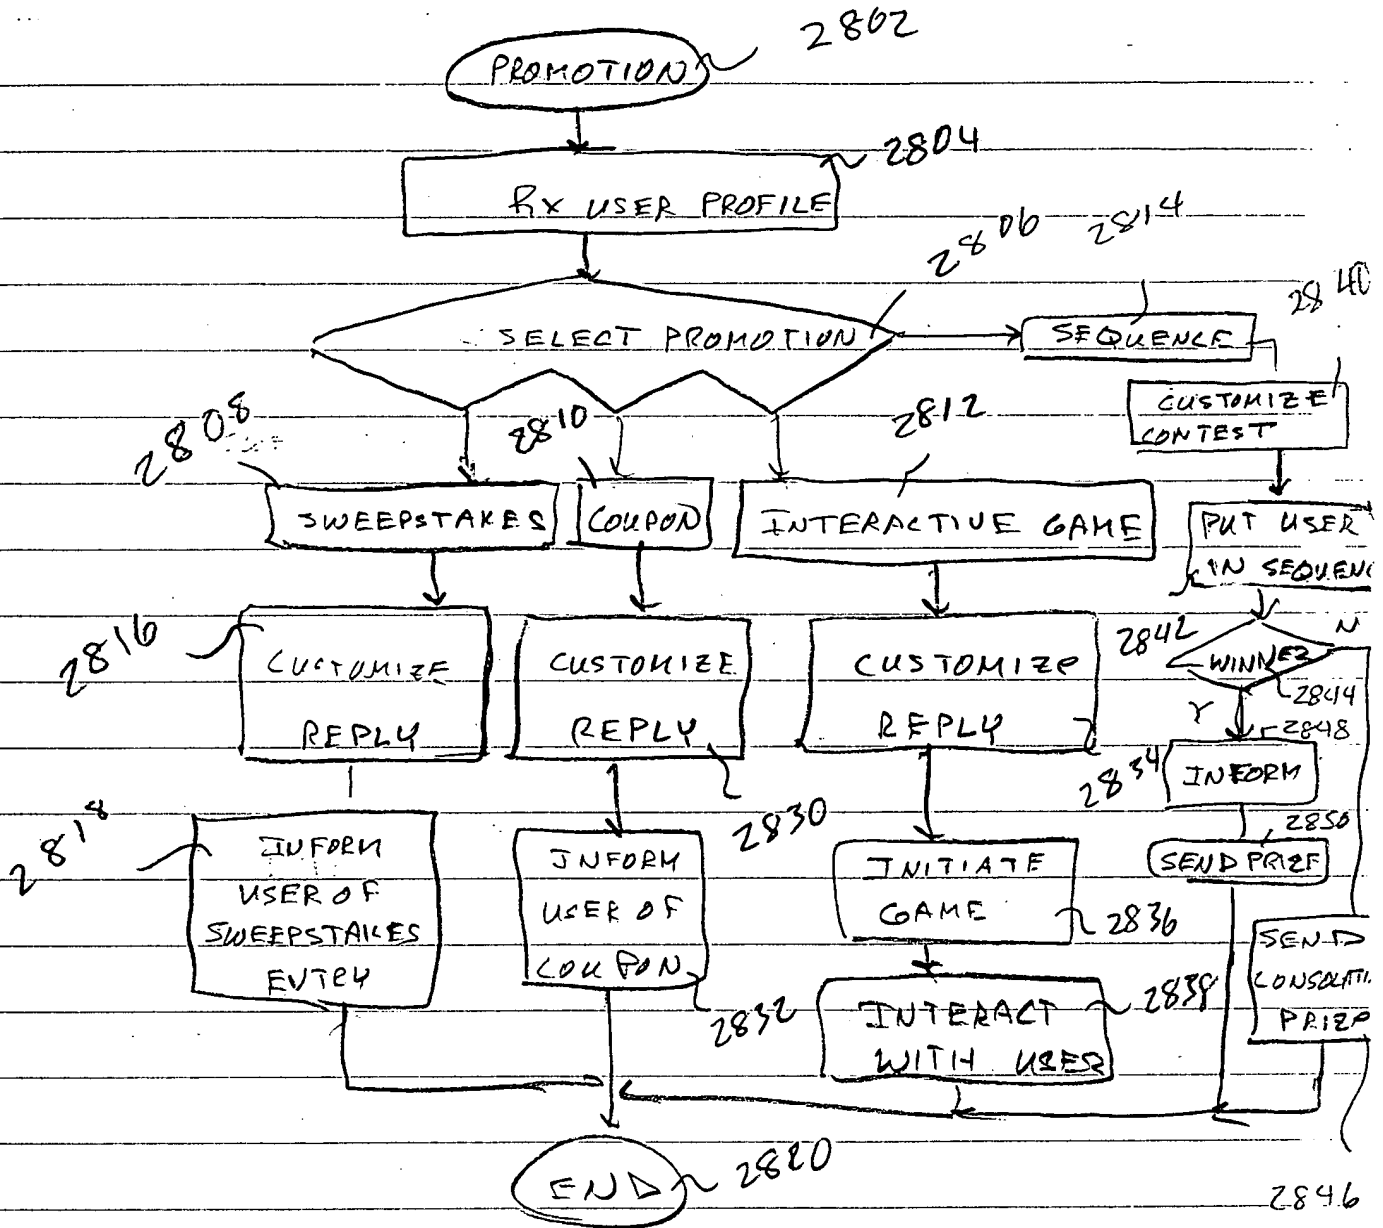 2802
PROMOTION
2804
Rx USER PROFILE
2806
2814
2840
SELECT PROMOTION
SEQUENCE
CUSTOMIZE
CONTEST
2808
2810
2812
SWEEPSTAKES
COUPON
INTERACTIVE GAME
PUT USER
IN SEQUENC
2816
CUSTOMIZE
REPLY
CUSTOMIZE
REPLY
2830
CUSTOMIZE
REPLY
2834
2842
WINNER
N
2844
Y
2848
INFORM
2850
SEND PRIZE
2818
INFORM
USER OF
SWEEPSTAKES
ENTRY
INFORM
USER OF
COUPON
2832
INITIATE
GAME
2836
INTERACT
WITH USER
2838
SEND
CONSOLATI
PRIZE
END
2820
2846